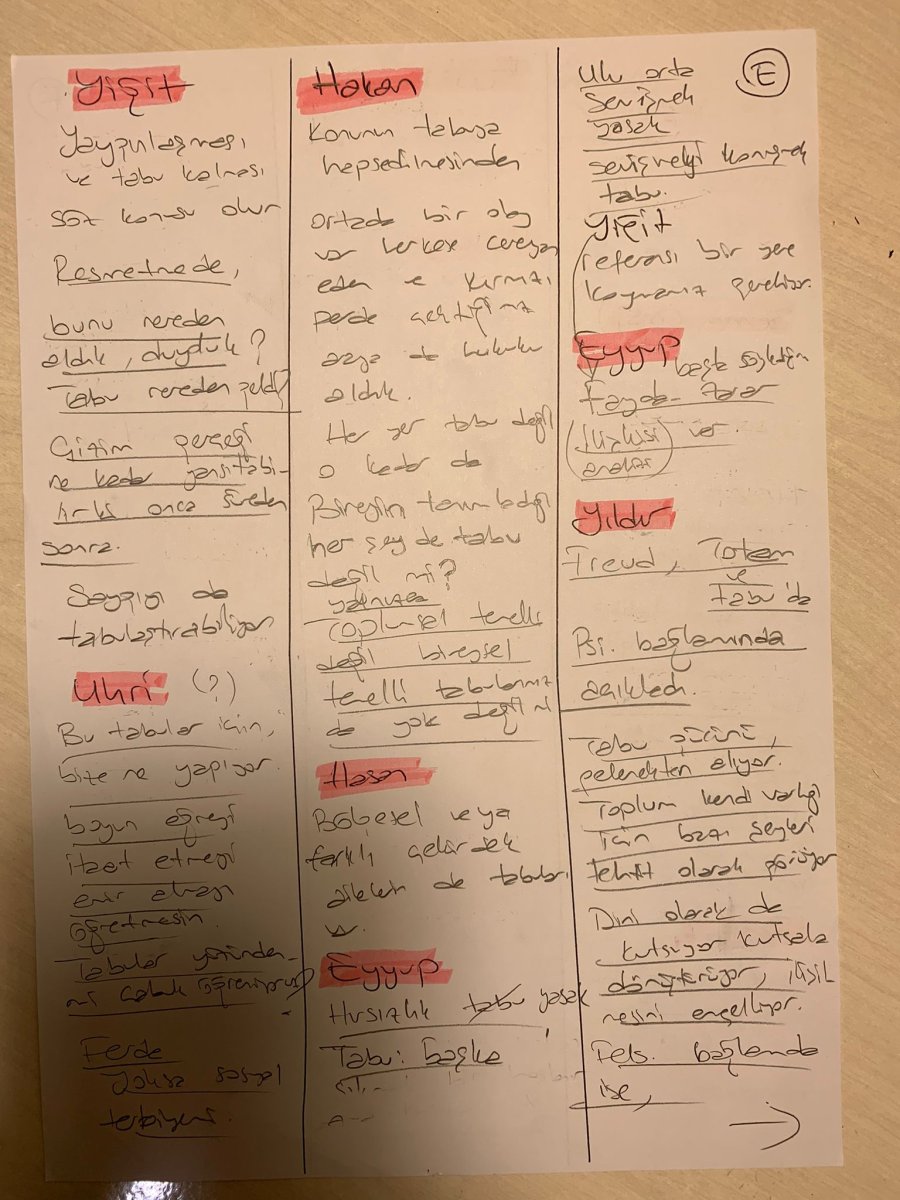 Yiğit
Yaygınlaşması
ve tabu kalması
söz konusu olur
Resmetmede,
bunu nereden
aldık, duyduk?
Tabu nereden geldi?
Gizim gerçeği
ne kadar yansıtabi-
lir ki onca süreden
sonra.
Saygıyı da
tabulaştırabiliyor
Ulvi (?)
Bu tabular için,
bize ne yapıyor.
boyun eğmeyi
itaat etmeyi
emir almayı
öğretmesin.
Tabular yüzünden
mi öğreniyoruz?
Ferde
yoksa sosyal
terbiyeni
Hakan
Konunun tabuya
hapsedilmesinden
ortada bir olay
var herkese cereyan
eden ve kırmızı
perde çektiğimiz
azya da hukuku
aldık.
Her yer tabu değil
o kadar da
Bireyin tanımladığı
her şey de tabu
değil mi?
yalnızca
Toplumsal temelli
değil bireysel
temelli tabularımız
da yok değil mi
Hasan
Bölgesel veya
farklı gelirsek
ailelerin de tabuları
var.
Eyyup
Hırsızlık tabu yasak
Tabu: başka
E
Ulu orta
Sevişmek
yasak
sevişmeyi konuşmak
tabu.
Yiğit
referansı bir yere
koymamız gerekiyor.
Eyyup başta söylediğim
fayda-zarar
ilişkisi var.
analizi
Yıldır
Freud, Totem
ve
tabu'da
Psi. bağlamında
açıkladı.
Tabu gücünü,
gelenekten alıyor.
Toplum kendi varlığı
için bazı şeyleri
tehdit olarak görüyor
Dini olarak da
kutsuyor kutsala
dönüştürüyor, ilişil
mesini engelliyor.
Fels. bağlamda
ise,
→